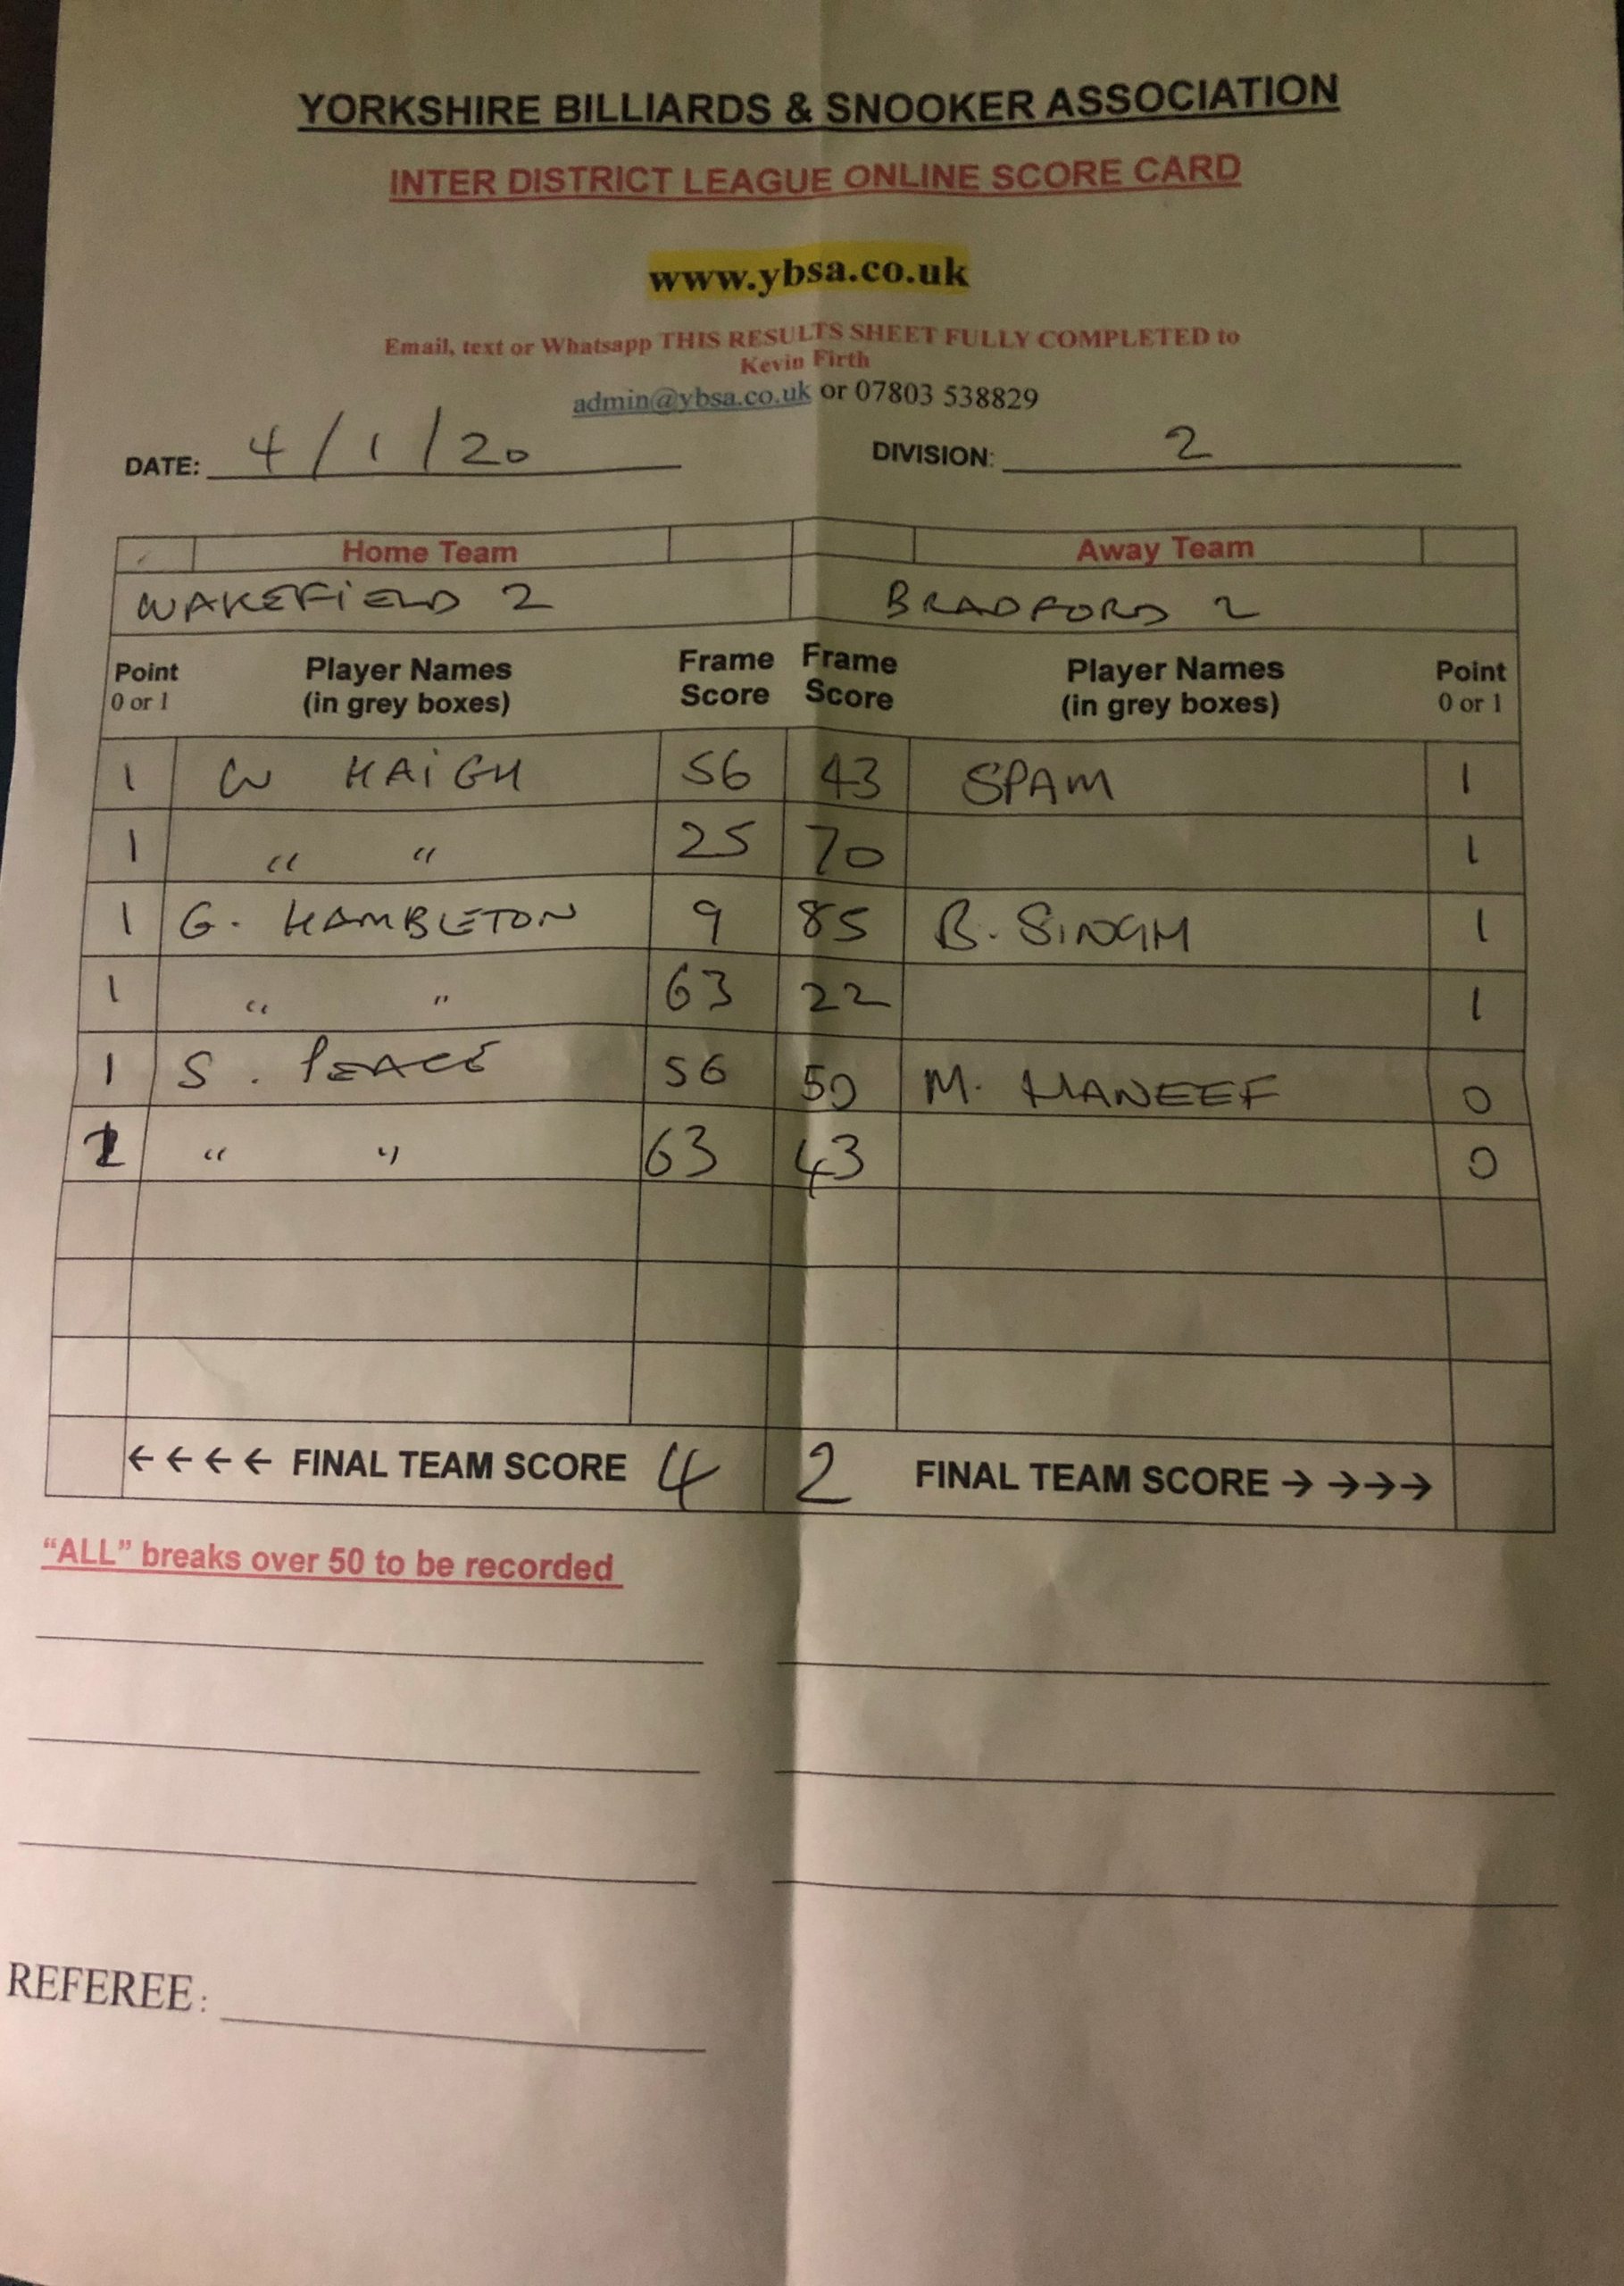 YORKSHIRE BILLIARDS & SNOOKER ASSOCIATION
INTER DISTRICT LEAGUE ONLINE SCORE CARD
www.ybsa.co.uk
Email, text or Whatsapp THIS RESULTS SHEET FULLY COMPLETED to
Kevin Firth
admin@ybsa.co.uk or 07803 538829
DATE: 4/1/20 DIVISION: 2
Home Team Away Team
WAKEFiELD 2 BRADFORD 2
Point Player Names Frame Frame Player Names Point
0 or 1 (in grey boxes) Score Score (in grey boxes) 0 or 1
1 W HAiGH 56 43 SPAM 1
1 " " 25 70 1
1 G. HAMBLETON 9 85 B. SiNGH 1
1 " " 63 22 1
1 S. PEACE 56 50 M. HANEEF 0
1 " " 63 43 0
←←←← FINAL TEAM SCORE 4 2 FINAL TEAM SCORE → →→→
"ALL" breaks over 50 to be recorded
REFEREE: